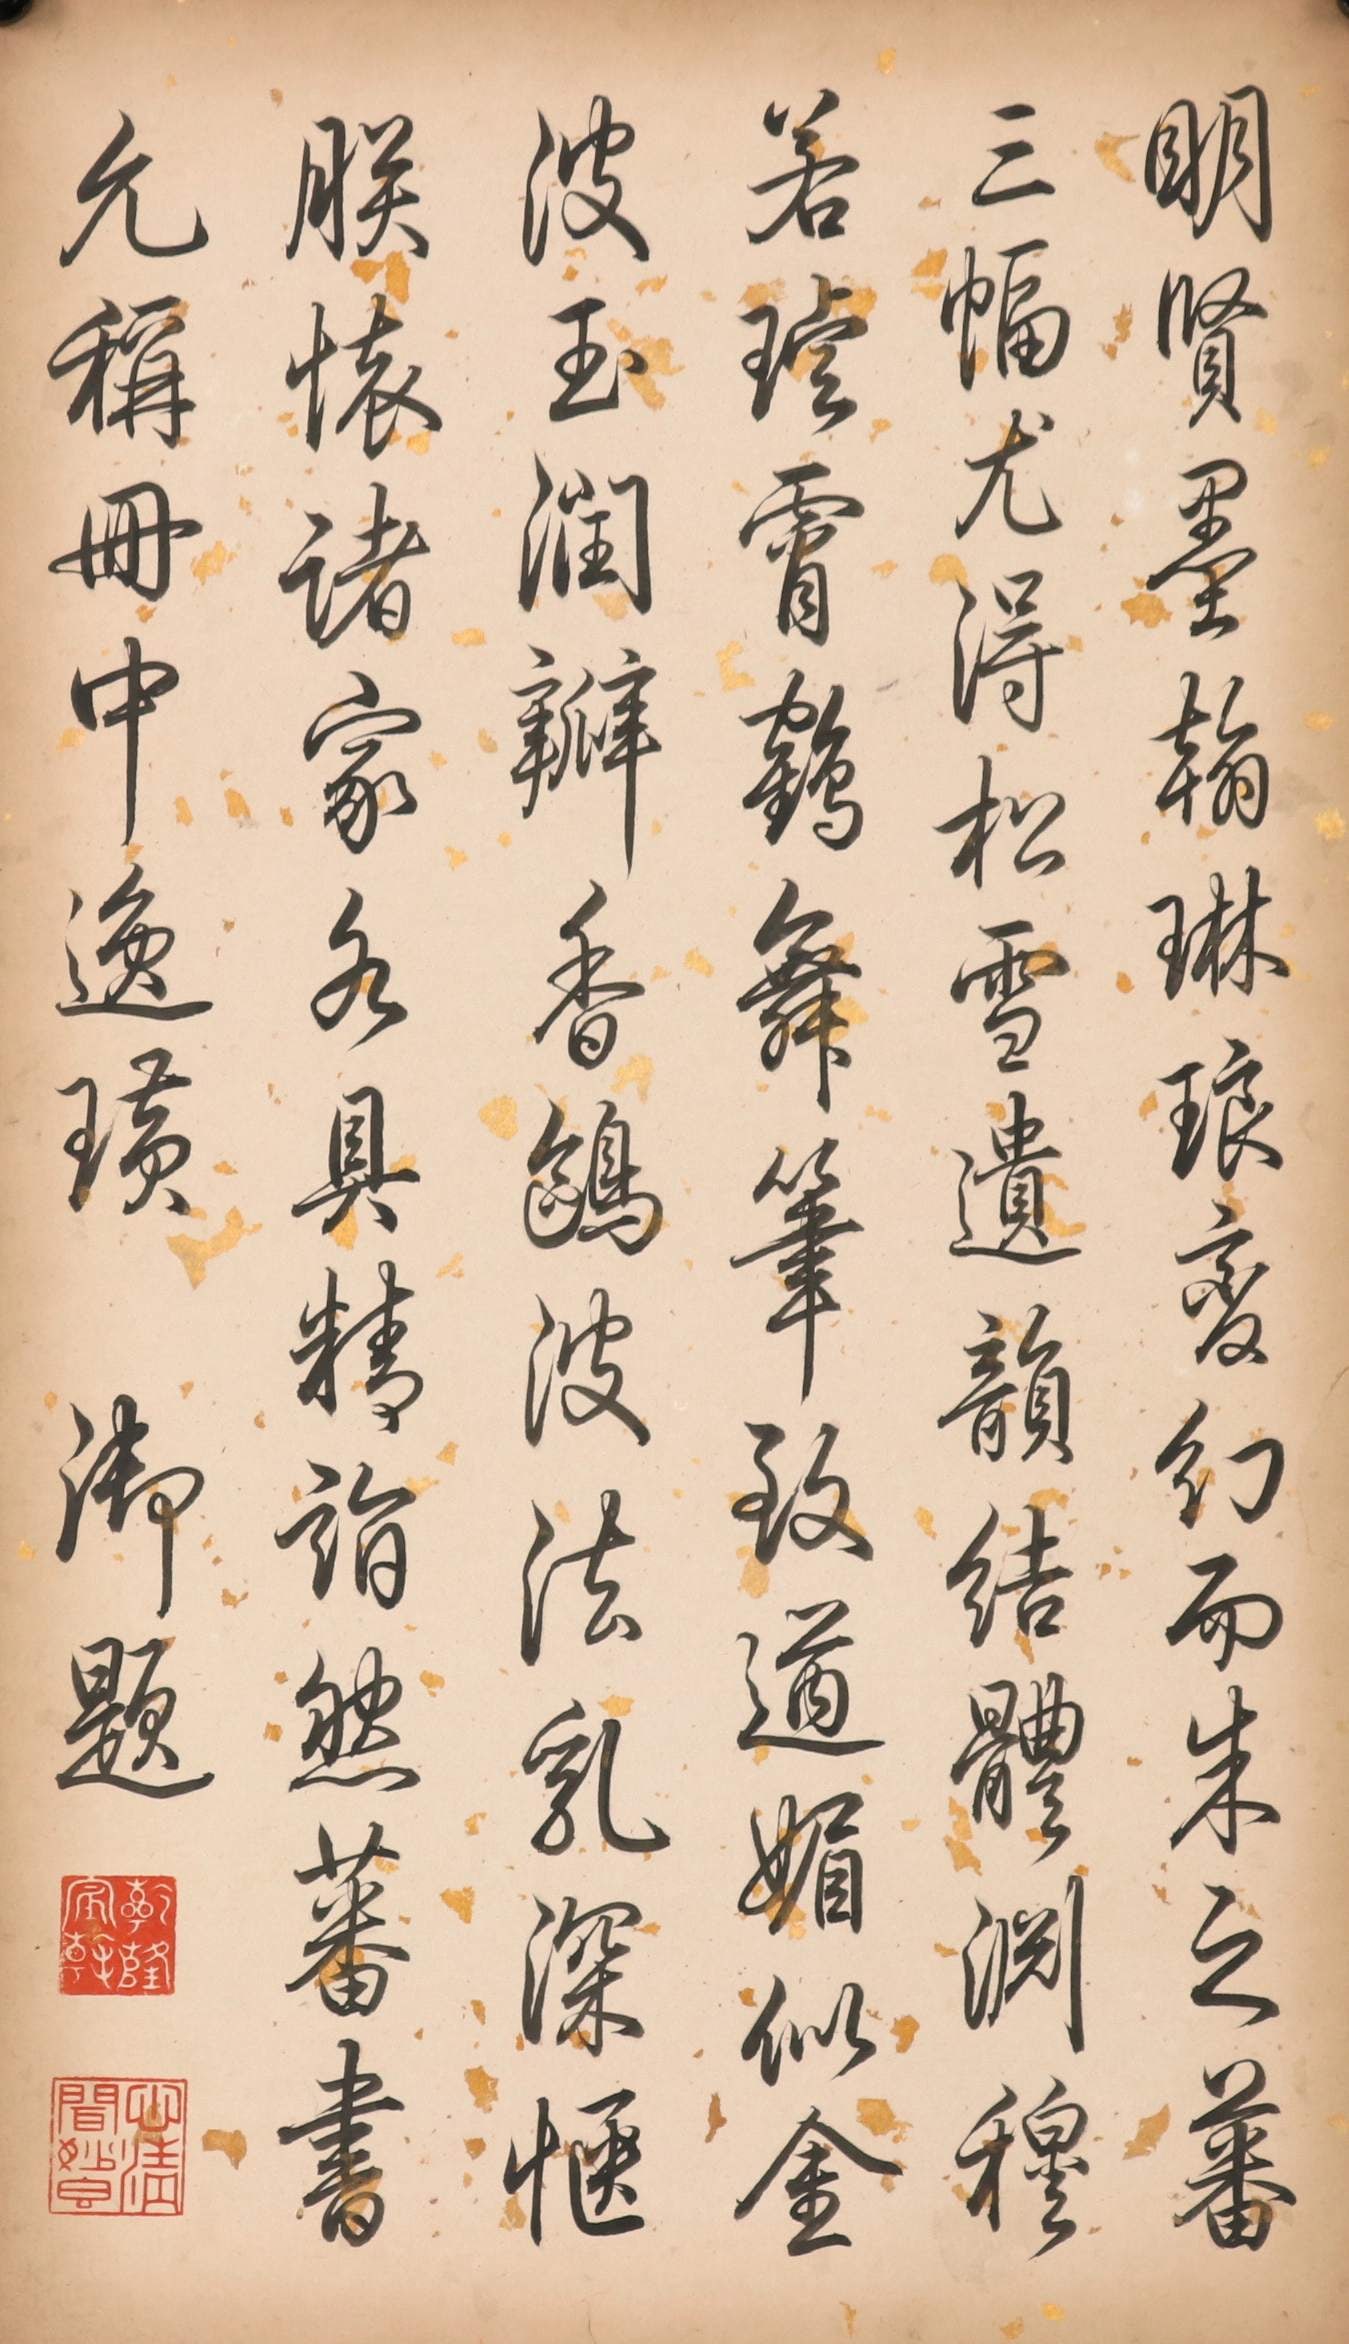 明賢墨翰琳琅變幻而朱之蕃
三幅尤得松雪遺韻結體淵穆
若璿霄鶴舞筆致遒媚似金
波玉潤瓣香鷗波法乳深愜
朕懷諸家各具精詣然蕃書
允稱冊中逸璜 御題
乾隆宸翰